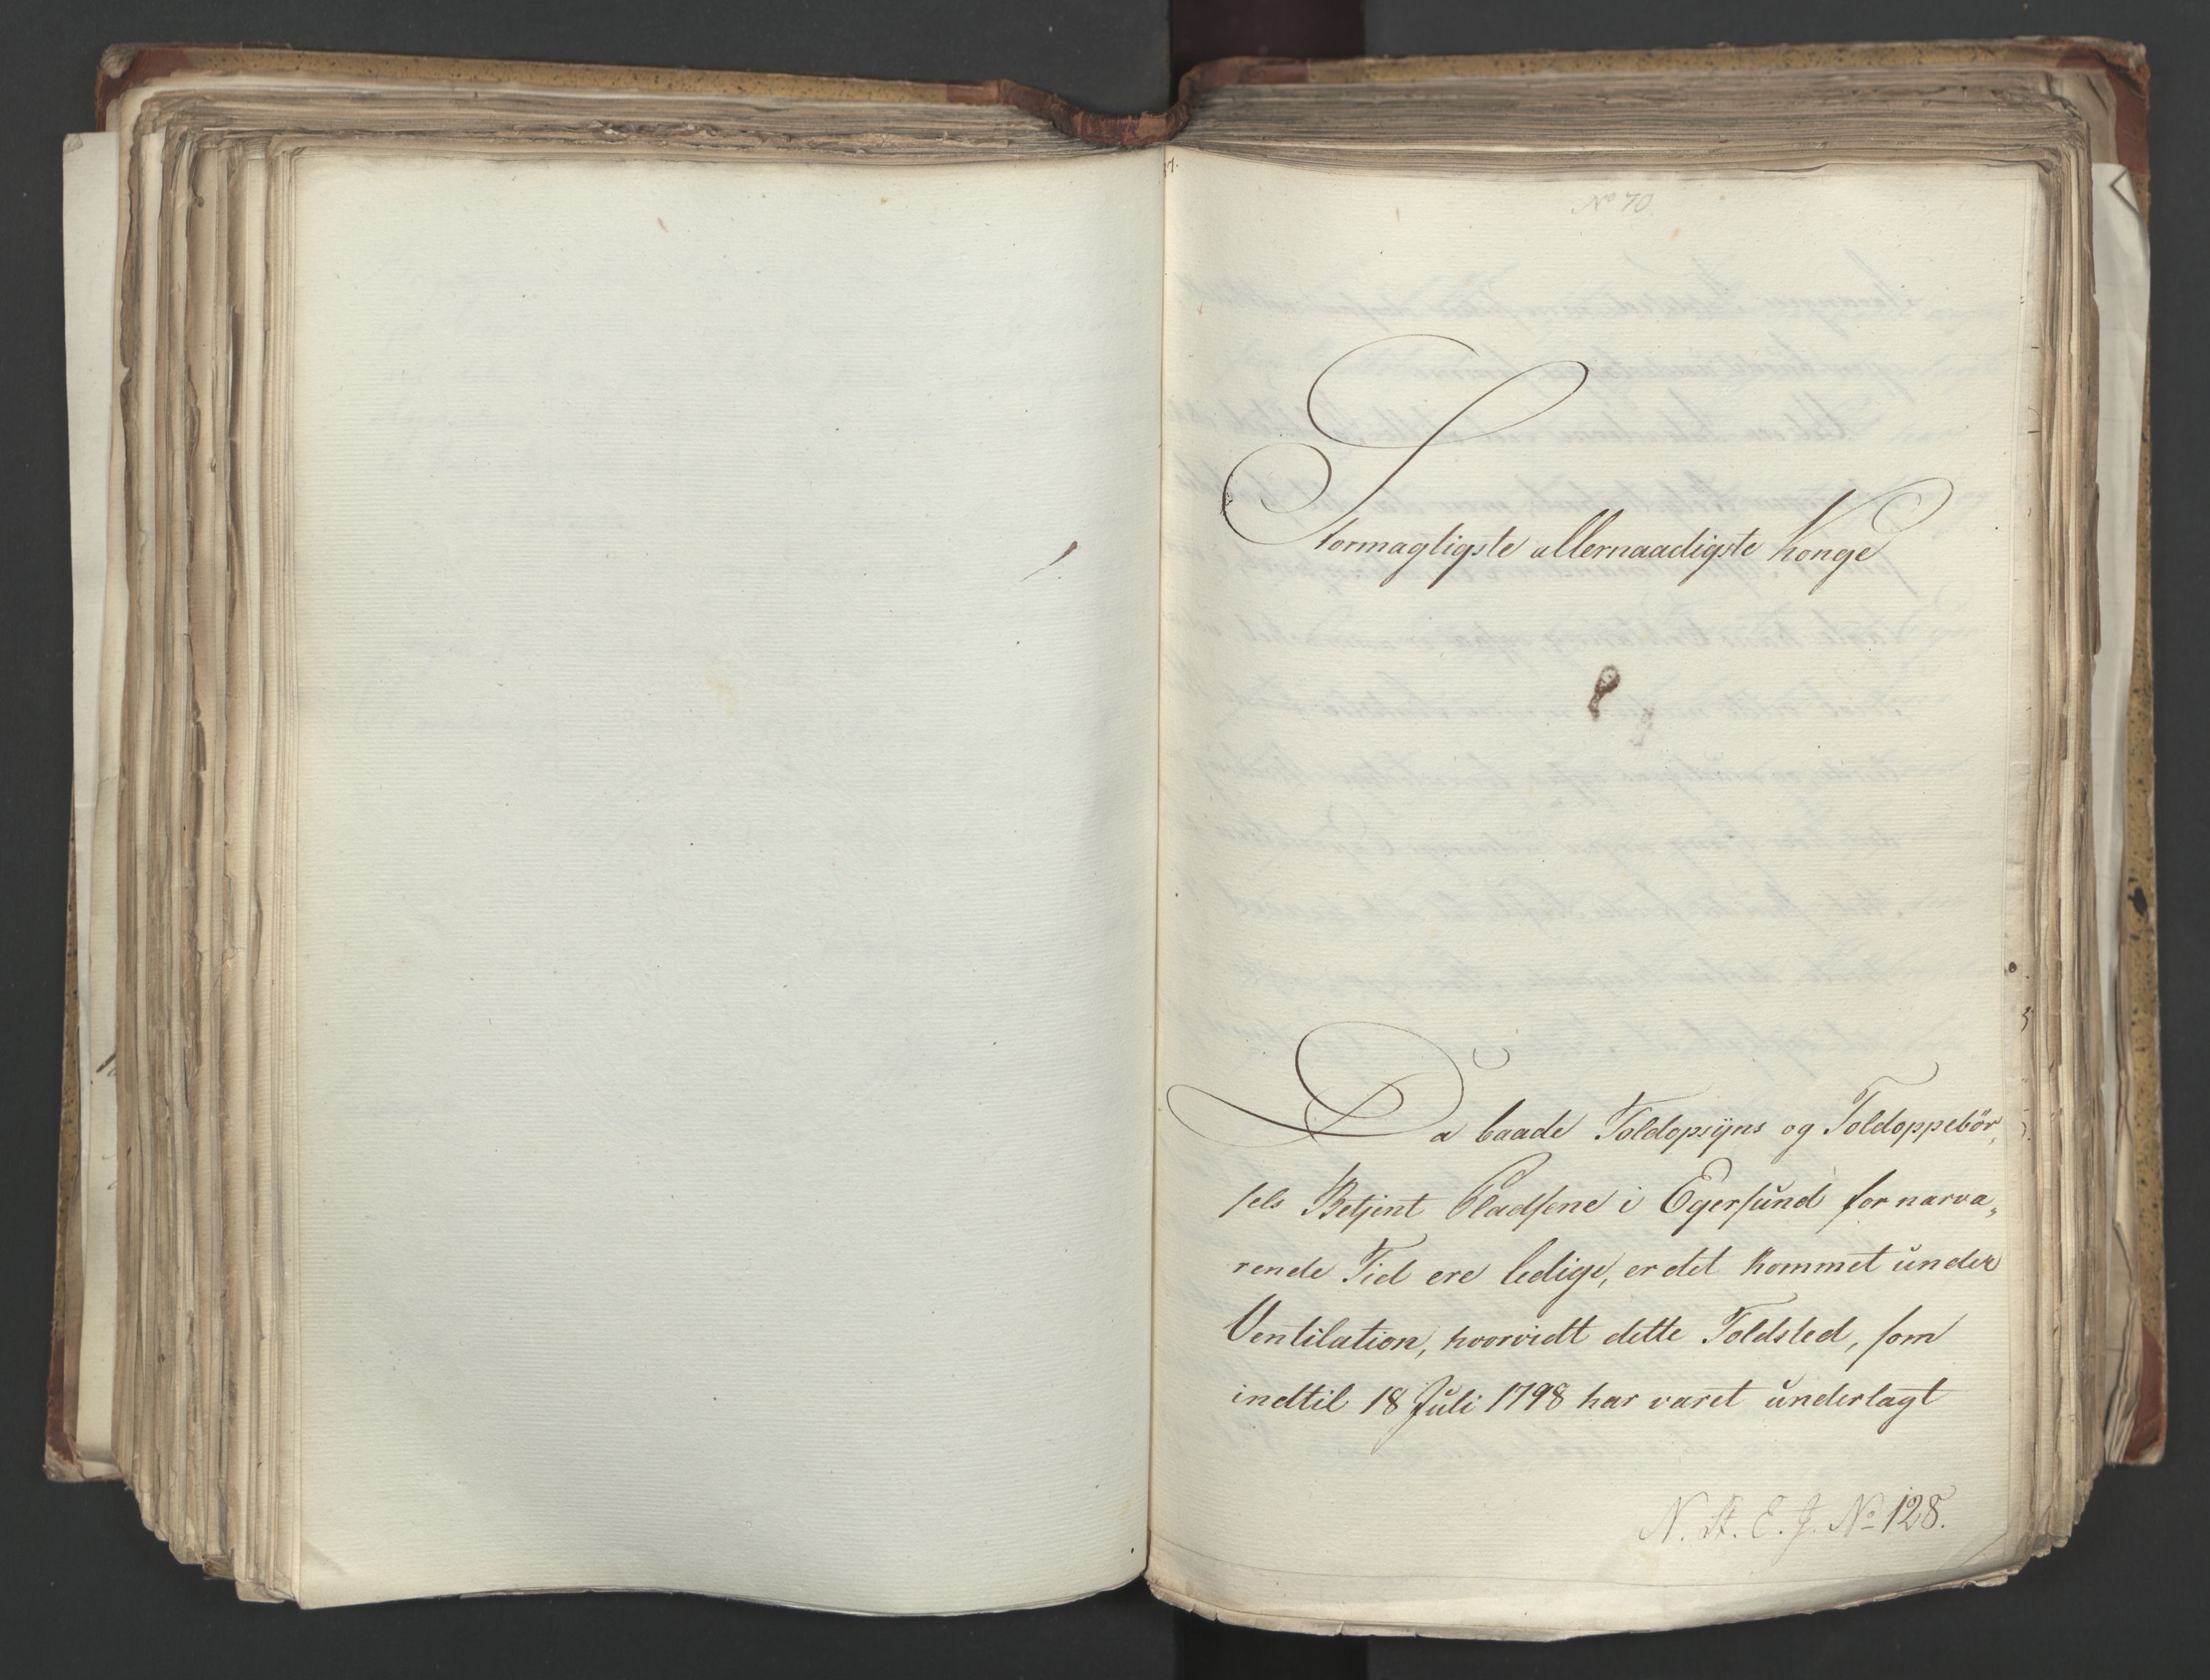 No 70
Stormagtigste allernaadigste Konge
Da baade Toldopsÿns og Toldoppebör„
sels Betjent Pladsene i Egersund for narva„
rende Tid ere ledige, er det kommet under
Ventilation, hvorvidt dette Toldsted, som
indtil 18 Juli 1798 har varet underlagt
N. A. E. J. No 128.